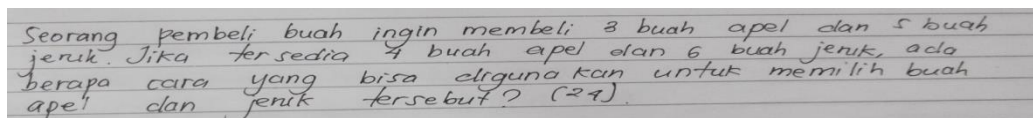 Seorang pembeli buah ingin membeli 3 buah apel dan 5 buah
jeruk. Jika tersedia 4 buah apel dan 6 buah jeruk, ada
berapa cara yang bisa digunakan untuk memilih buah
apel dan jeruk tersebut? (24).